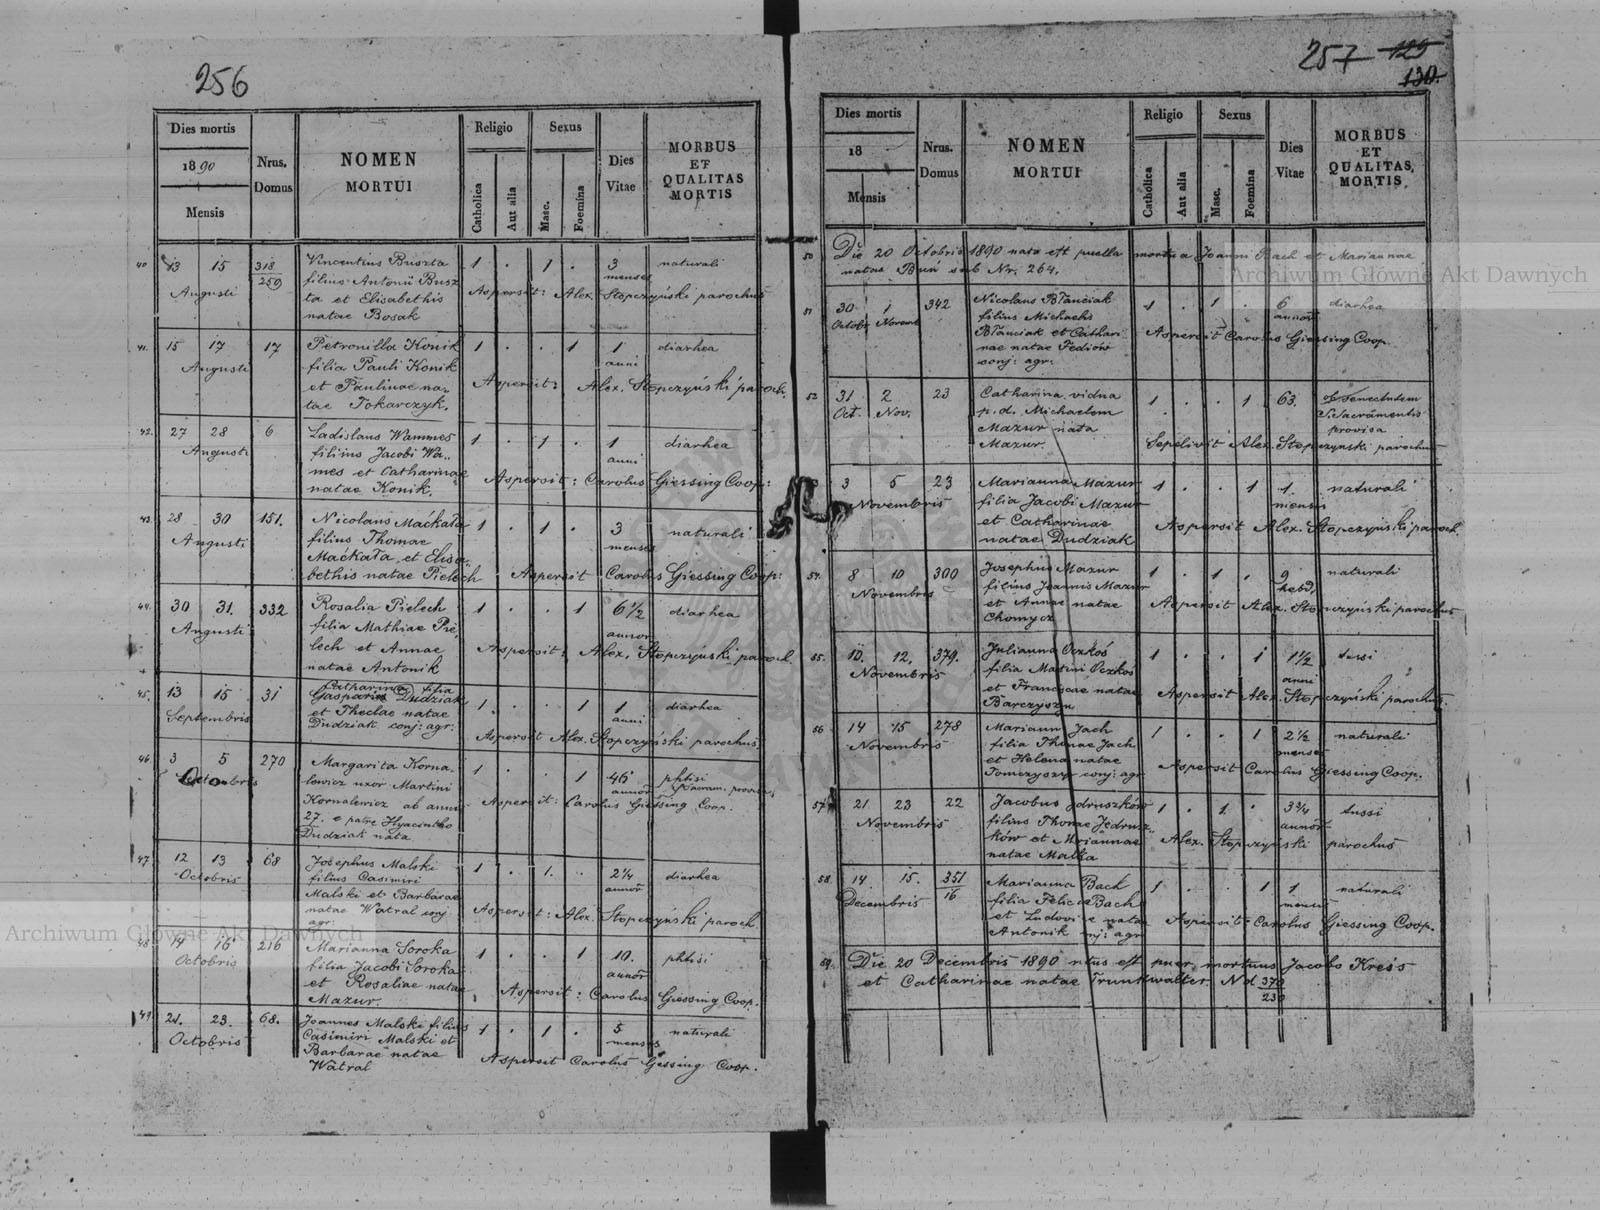 256
Dies mortis
1890
Mensis
Nrus.
Domus
NOMEN
MORTUI
Religio
Catholica
Aut alia
Sexus
Masc.
Foemina
Dies
Vitae
MORBUS
ET
QUALITAS
MORTIS
40 13 15 318/259 Vincentius Buszta 1 . 1 . 3 naturali
Augusti filius Antonii Busz menses
ta et Elisabethis Aspersit: Alex. Stopczyński parochus
natae Bosak
41. 15 17 17 Petronilla Konik 1 . . 1 1 diarhea
Augusti filia Pauli Konik anni
et Paulinae na- Aspersit: Alex. Stopczyński paroch.
tae Tokarczyk.
42. 27 28 6 Ladislaus Wammes 1 . 1 . 1 diarhea
Augusti filius Jacobi Wa.. anni
mes et Catharinae Aspersit: Carolus Giessing Coop:
natae Konik.
43. 28 30 151. Nicolaus Maćkała 1 . 1 . 3 naturali
Augusti filius Thomae menses
Maćkała et Elisa-
bethis natae Pielech Aspersit Carolus Giessing Coop:
44. 30 31. 332 Rosalia Pielech 1 . . 1 6 1/2 diarhea
Augusti filia Mathiae Pie annor
lech et Annae Aspersit: Alex. Stopczyński paroch.
natae Antonik
45. 13 15 31 Catharina filia
Gasparis Dudziak 1 . . 1 1 diarhea
Septembris et Theclae natae anni
Dudziak conj: agr: Aspersit Alex. Stopczyński parochus.
46. 3 5 270 Margarita Korna- 1 . . 1 46 phtisi
Octombris lewicz uxor Martini annor Sacram. provisa
Kornalewicz ab annis Aspersit: Carolus Giessing Coop.
27. e patre Hyacintho
Dudziak nata
47. 12 13 68 Josephus Malski 1 . 1. . 2 1/4 diarhea
Octobris filius Casimiri annor
Malski et Barbarae
natae Watral conj Aspersit: Alex. Stopczyński paroch
agr:
48 14 16 216 Marianna Soroka 1 . . 1 10. phtisi
Octobris filia Jacobi Soroka annor
et Rosaliae natae Aspersit: Carolus Giessing Coop.
Mazur.
49 21. 23. 68. Joannes Malski filius 1 . 1 . 5 naturali
Octobris Casimiri Malski et menses
Barbarae natae Aspersit Carolus Giessing Coop.
Watral
257 125
130.
Dies mortis
18
Mensis
Nrus.
Domus
NOMEN
MORTUI
Religio
Catholica
Aut alia
Sexus
Masc.
Foemina
Dies
Vitae
MORBUS
ET
QUALITAS,
MORTIS,
50 Die 20 Octobris 1890 nata est puella mortua Joanni Bach et Mariannae
natae Buń sub Nr. 264.
51 30 1 342 Nicolaus Błańciak 1 . 1 . 6 diarhea
Octobr Novemb filius Michaelis annor
Błańciak et Cathari Aspersit Carolus Giessing Coop.
nae natae Fediów
conj: agr:
52 31 2 23 Catharina vidua 1 . . 1 63. ob Senectutem
Oct. Nov. p. d. Michaelem SSacramentis
Mazur nata provisa
Mazur. Sepelivit Alex. Stopczynski parochus
3 5 23 Marianna Mazur 1 . . 1 1. naturali
Novembris filia Jacobi Mazur mensis
et Catharinae Aspersit Alex. Stopczyński paroch.
natae Dudziak
54. 8 10 300 Josephus Mazur 1 . 1 . 9 naturali
Novembris filius Joannis Mazur hebd.
et Annae natae Aspersit Alex. Stopczyński parochus
Chomycz
55. 10. 12. 379. Julianna Oczkoś 1 . . 1 1 1/2 tussi
Novembris filia Martini Oczkoś anni
et Franciscae natae Aspersit Alex. Stopczyński parochus.
Barczyszyn
56 14 15 278 Mariann Jach 1 . . 1 2 1/2 naturali
Novembris filia Thomae Jach menses
et Helena natae Aspersit Carolus Giessing Coop.
Tomczyszyn conj: agr
57 21 23 22 Jacobus Jdruszków 1 . 1. . 3 3/4 tussi
Novembris filius Thomae Jedrusz.. annor
ków et Mariannae Alex. Stopczyński parochus
natae Malka
58. 14. 15. 351/16 Marianna Bach 1 . . 1 1. naturali
Decembris filia Felicis Bach mensis
et Ludovicae natae Aspersit Carolus Giessing Coop.
Antonik conj: agr
59. Die 20 Decembris 1890 natus est puer mortuus Jacobo Kress
et Catharinae natae Trunkwalter. Nd 370/230
Archiwum Główne Akt Dawnych
Archiwum Główne Akt Dawnych